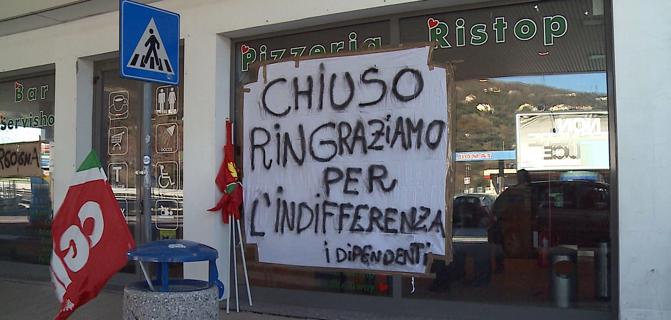 Pizzeria Ristop
Bar
Servisho
CHIUSO
RINGRAZIAMO
PER
L'INDIFFERENZA
I DIPENDENTI
CGIL
DOCCE